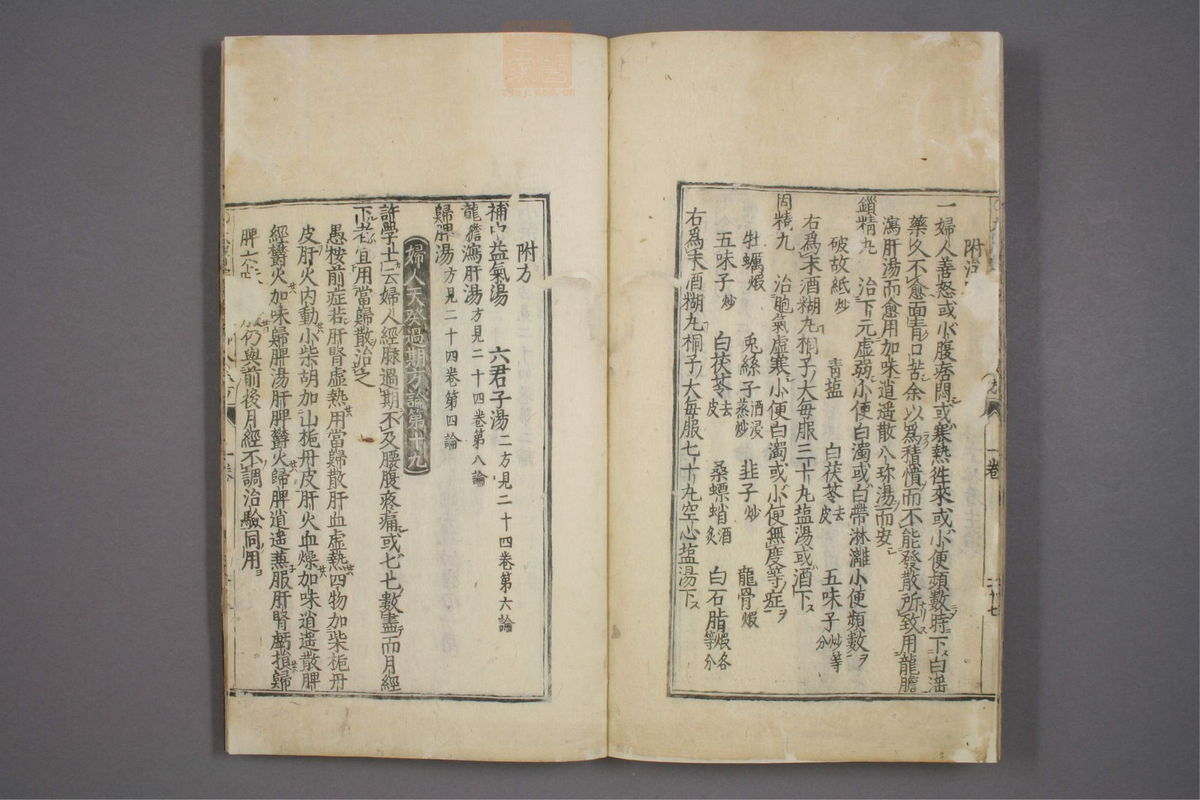 附治
一婦人善怒或小腹痞悶或寒熱徃來或小便頻數時下白滛
藥久不愈面青口苦余以爲積憤而不能發散所致用龍膽
瀉肝湯而愈用加味逍遥散八珎湯而安
鎖精丸 治下元虚弱小便白濁或白帶淋漓小便頻數
破故紙炒 青塩 白茯苓去皮 五味子炒等分
右爲末酒糊丸桐子大毎服三十丸塩湯或酒下
固精丸 治胞氣虚寒小便白濁或小便無度等症
牡蠣煆 兎絲子酒浸蒸炒 韭子炒 龍骨煆
五味子炒 白茯苓去皮 桑螵蛸酒炙 白石脂煆各等分
右爲末酒糊丸桐子大毎服七十丸空心塩湯下
一卷
二十七
附方
補中益氣湯 六君子湯二方見二十四卷第六論
龍膽瀉肝湯方見二十四卷第八論
歸脾湯方見二十四卷第四論
婦人天癸過期方論第十九
許學士云婦人經脉過期不及腰腹疼痛或七七數盡而月經
下者宜用當歸散治之
愚桉前症若肝腎虚熱用當歸散肝血虚熱四物加柴栀丹
皮肝火内動小柴胡加山栀丹皮肝火血燥加味逍遥散脾
經欝火加味歸脾湯肝脾欝火歸脾逍遥兼服肝腎虧損歸
脾六 仍與前後月經不調治驗同用
一卷